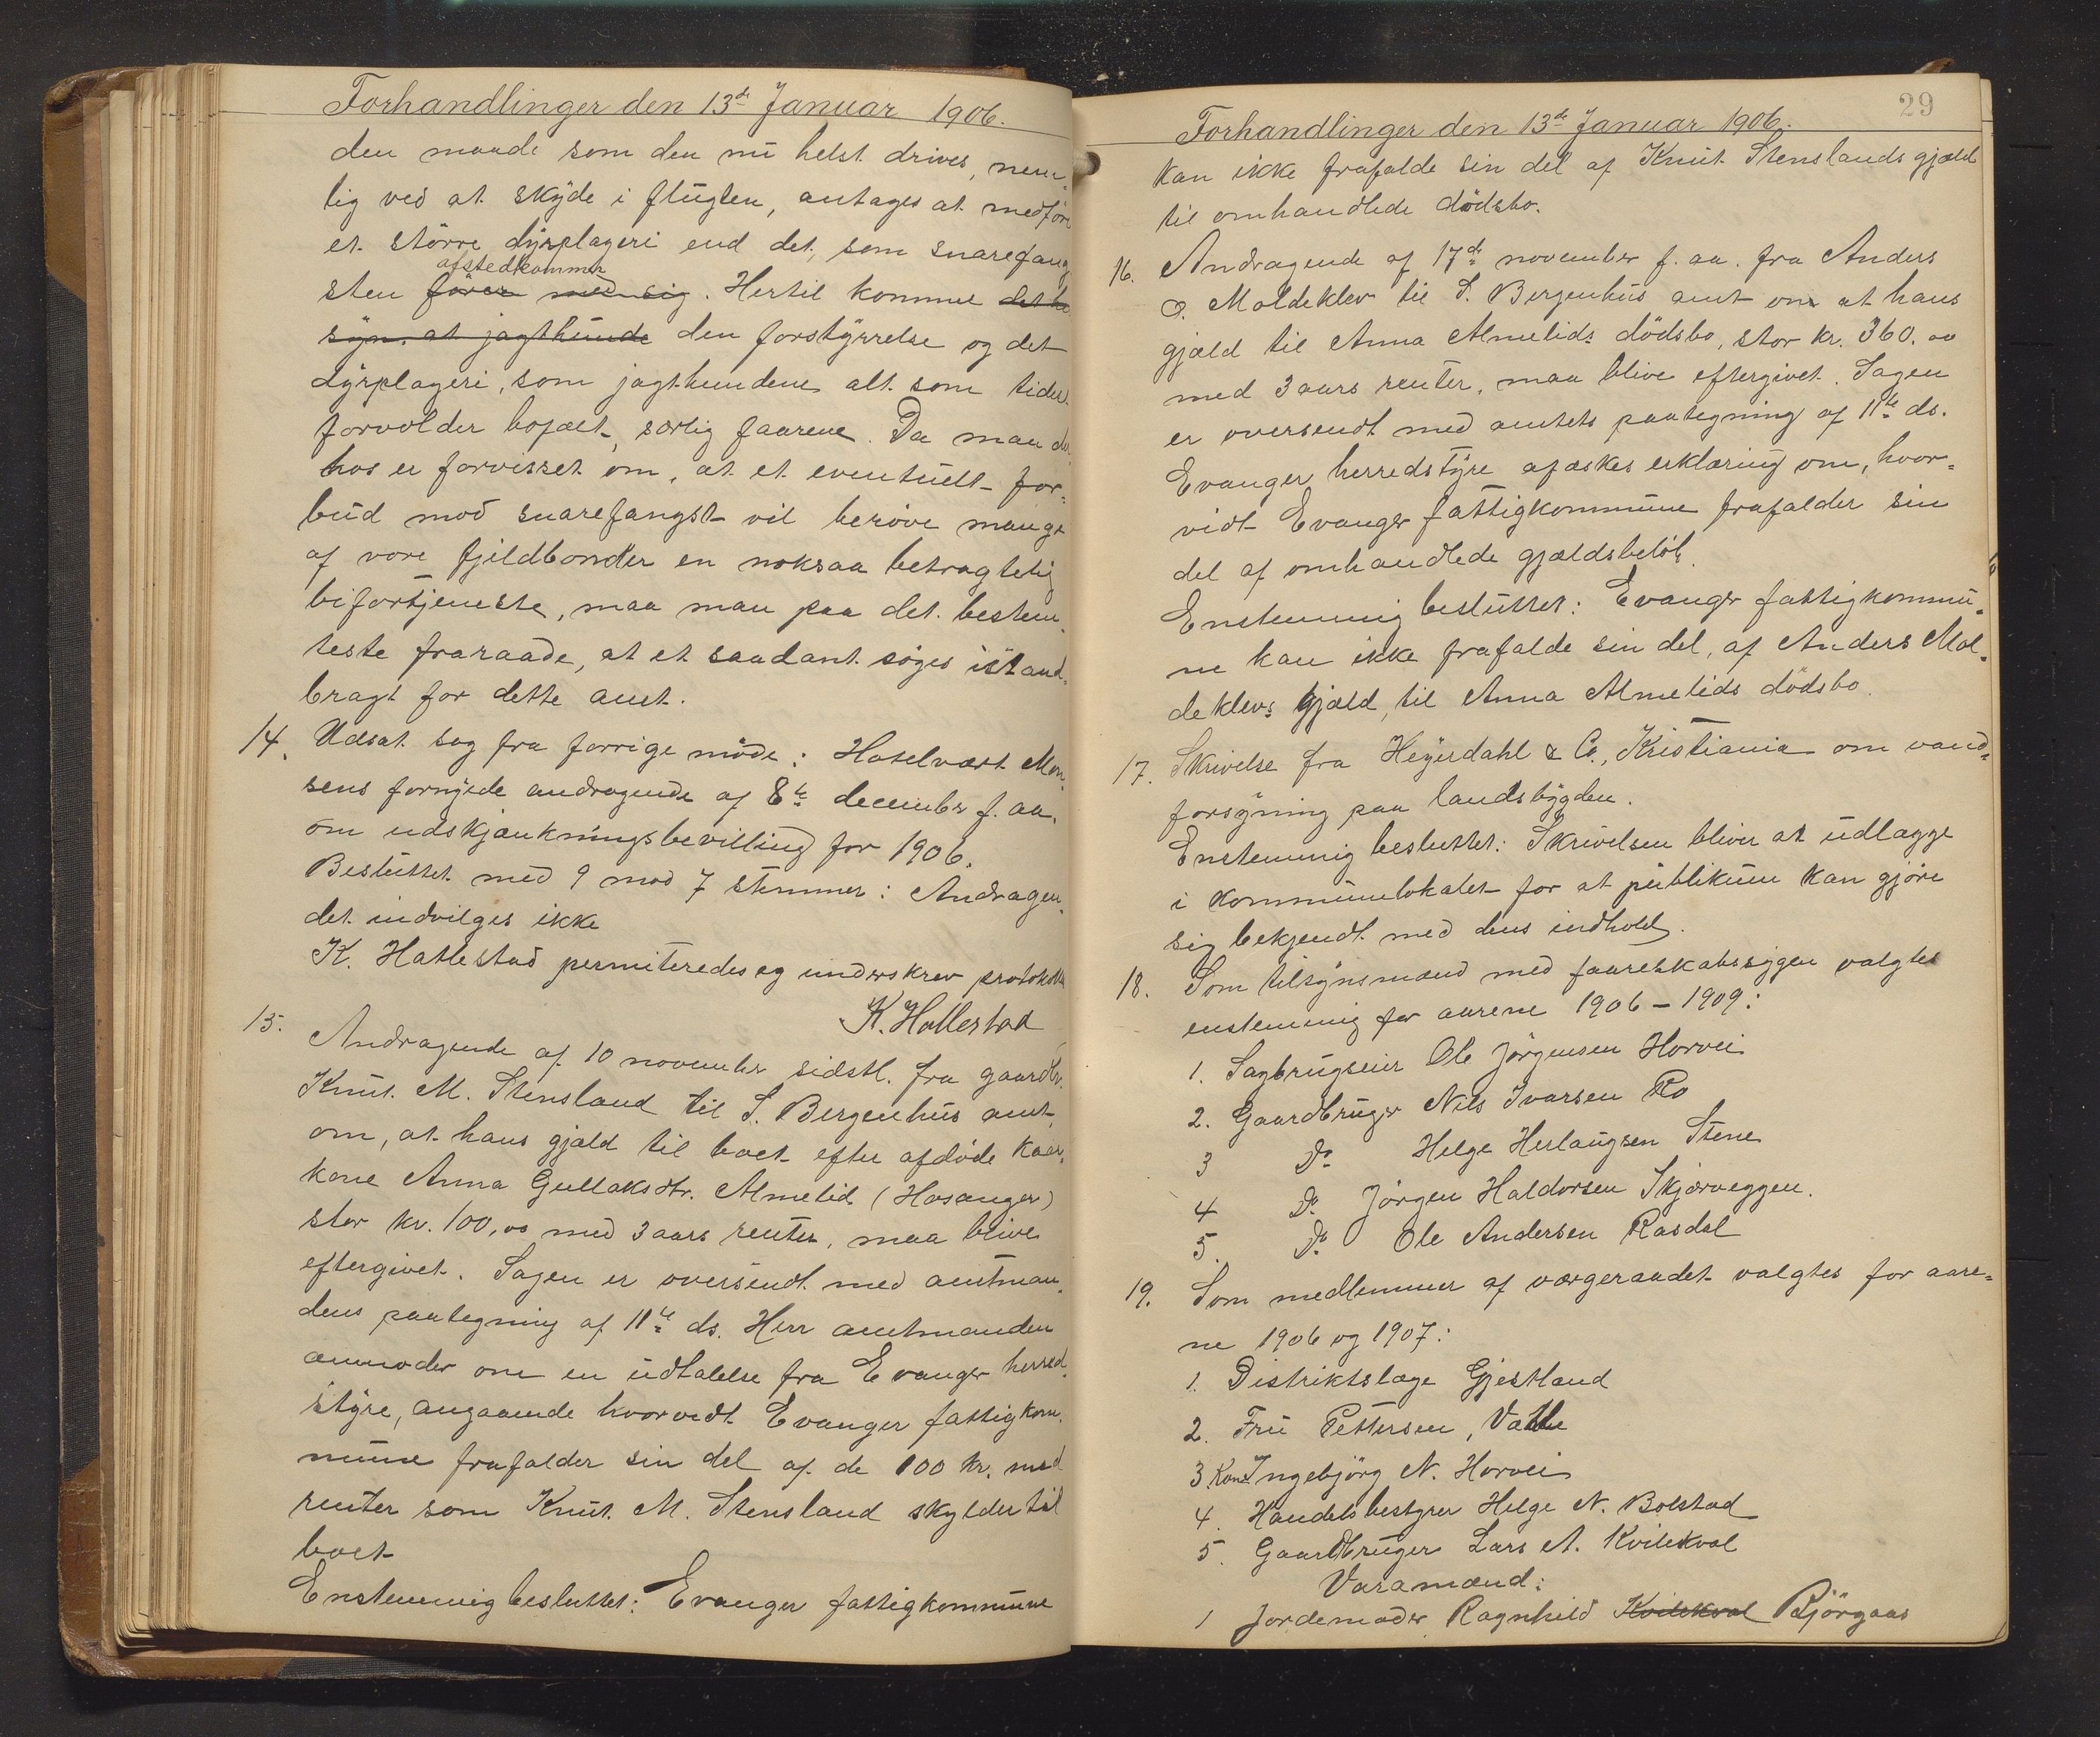 Forhandlinger den 13de Januar 1906.
den maade som den nu helst drives, nem-
lig ved at skyde i flugten, antages at medføre
et større dyrplageri end det, som snarefang
afstedkommer
sten fører med sig. Hertil kommer det he
syn, at jagthunde den forstyrrelse og det
dyrplageri, som jagthundene alt som tider
forvolder bofæet, særlig faarene. Da man der
hos er forvisset om, at et eventuelt for-
bud mod snarefangst vil berøve mange
af vore fjeldbønder en noksaa betragtelig
bifortjeneste, maa man paa det bestem-
teste fraraade, at et saadant søges istand-
bragt for dette amt.
14. Udsat sag fra forrige møde: Hotelvært Mon-
sens fornyede andragende af 8de december f. aa.
om udskjænkningsbevilling for 1906.
Besluttet med 9 mod 7 stemmer: Andragen-
det indvilges ikke
K. Hallestad permiteredes og underskrev protokollen
K. Hallestad
15. Andragende af 10 november sidstl. fra gaardbr.
Knut M. Stensland til S. Bergenhus amt,
om, at hans gjæld til boet efter afdøde kaar-
kone Anna Gullaksdtr. Almelid (Hosanger)
stor kr. 100,00 med 3 aars renter, maa blive
eftergivet. Sagen er oversendt med amtman-
dens paategning af 11te ds. Herr amtmanden
anmoder om en udtalelse fra Evanger herred-
styre, angaaende hvorvidt Evanger fattigkom-
mune frafalder sin del af de 100 kr. med
renter som Knut M. Stensland skylder til
boet
Enstemmig besluttet: Evanger fattigkommune
29
Forhandlinger den 13de Januar 1906.
kan ikke frafalde sin del af Knut Stenslands gjæld
til omhandlede dødsbo.
16. Andragende af 17de november f. aa. fra Anders
O. Moldeklev til S. Bergenhus amt om at hans
gjæld til Anna Almelids dødsbo, stor kr. 360.00
med 3 aars renter, maa blive eftergivet. Sagen
er oversendt med amtets paategning af 11te ds.
Evanger herredstyre afæskes erklæring om, hvor-
vidt Evanger fattigkommune frafalder sin
del af omhandlede gjældsbeløb.
Enstemmig besluttet: Evanger fattigkommu-
ne kan ikke frafalde sin del, af Anders Mol-
deklevs gjæld, til Anna Almelids dødsbo.
17. Skrivelse fra Heyerdahl & Co., Kristiania om vand-
forsyning paa landsbygden.
Enstemmig besluttet: Skrivelsen bliver at udlægge
i kommunelokalet for at publikum kan gjøre
sig bekjendt med dens indhold.
18. Som tilsynsmænd med faareskabssygen valgtes
enstemmig for aarene 1906 – 1909:
1. Sagbrugseier Ole Jørgensen Horvei
2. Gaardbruger Nils Ivarsen Ro
3 Do Helge Herlaugsen Stene
4 Do Jørgen Haldorsen Skjærveggen.
5. Do Ole Andersen Rasdal
19. Som medlemmer af værgeraadet valgtes for aare-
ne 1906 og 1907:
1. Distriktslæge Gjestland
2. Fru Pettersen, Vatle
3. Kone Ingebjørg N. Horvei
4. Handelsbestyrer Helge N. Bolstad
5. Gaardbruger Lars A. Kvilekval
Varamænd:
1 Jordemoder Ragnhild Kvilekval Bjørgaas